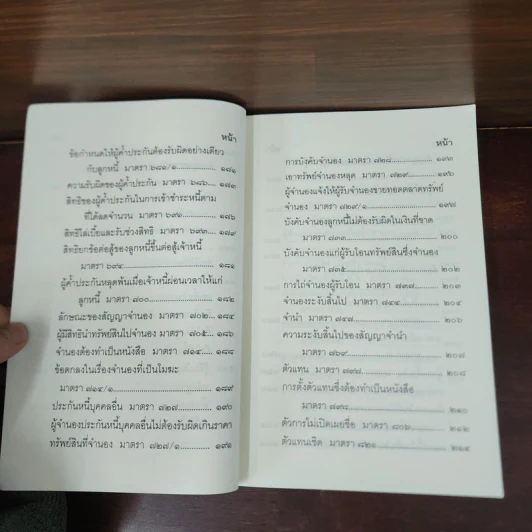 หน้า
ข้อกำหนดให้ผู้ค้ำประกันต้องรับผิดอย่างเดียว
กับลูกหนี้ มาตรา ๖๘๑/๑
ความรับผิดของผู้ค้ำประกัน มาตรา ๖๘๖
สิทธิของผู้ค้ำประกันในการเข้าชำระหนี้ตาม
ที่ได้ลดจำนวน มาตรา ๖๙๑
สิทธิไล่เบี้ยและรับช่วงสิทธิ มาตรา ๖๙๓
สิทธิยกข้อต่อสู้ของลูกหนี้ขึ้นต่อสู้เจ้าหนี้
มาตรา ๖๙๔
ผู้ค้ำประกันหลุดพ้นเมื่อเจ้าหนี้ผ่อนเวลาให้แก่
ลูกหนี้ มาตรา ๗๐๐ ๑๘๒
ลักษณะของสัญญาจำนอง มาตรา ๗๐๒ ๑๘๔
ผู้มีสิทธินำทรัพย์สินไปจำนอง มาตรา ๗๐๕ ๑๘๖
จำนองต้องทำเป็นหนังสือ มาตรา ๗๑๔ ๑๘๘
ข้อตกลงในเรื่องจำนองที่เป็นโมฆะ
มาตรา ๗๑๔/๑ ๑๘๙
ประกันหนี้บุคคลอื่น มาตรา ๗๒๗ ๑๙๐
ผู้จำนองประกันหนี้บุคคลอื่นไม่ต้องรับผิดเกินราคา
ทรัพย์สินที่จำนอง มาตรา ๗๒๗/๑
หน้า
การบังคับจำนอง มาตรา ๗๒๘ ๑๙๓
เอาทรัพย์จำนองหลุด มาตรา ๗๒๙ ๑๙๖
ผู้จำนองแจ้งให้ผู้รับจำนองขายทอดตลาดทรัพย์
จำนอง มาตรา ๗๒๙/๑ ๑๙๗
บังคับจำนองลูกหนี้ไม่ต้องรับผิดในเงินที่ขาด
มาตรา ๗๓๓ ๒๐๐
บังคับจำนองแก่ผู้รับโอนทรัพย์สินซึ่งจำนอง
มาตรา ๗๓๕ ๒๐๒
การไถ่จำนอง ผู้รับโอน มาตรา ๗๓๗ ๒๐๓
จำนองระงับสิ้นไป มาตรา ๗๔๔ ๒๐๔
จำนำ มาตรา ๗๔๗ ๒๐๖
ความระงับสิ้นไปของสัญญาจำนำ
มาตรา ๗๖๙ ๒๐๗
ตัวแทน มาตรา ๗๙๗ ๒๐๘
การตั้งตัวแทนซึ่งต้องทำเป็นหนังสือ
มาตรา ๗๙๘ ๒๑๐
ตัวการไม่เปิดเผยชื่อ มาตรา ๘๐๖ ๒๑๒
ตัวแทนเชิด มาตรา ๘๒๑ ๒๑๔